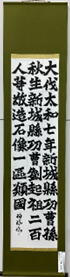 大代太和七年新城縣功曹孫
秋生新城縣功曹劉起祖二百
人等敬造石像一區願國